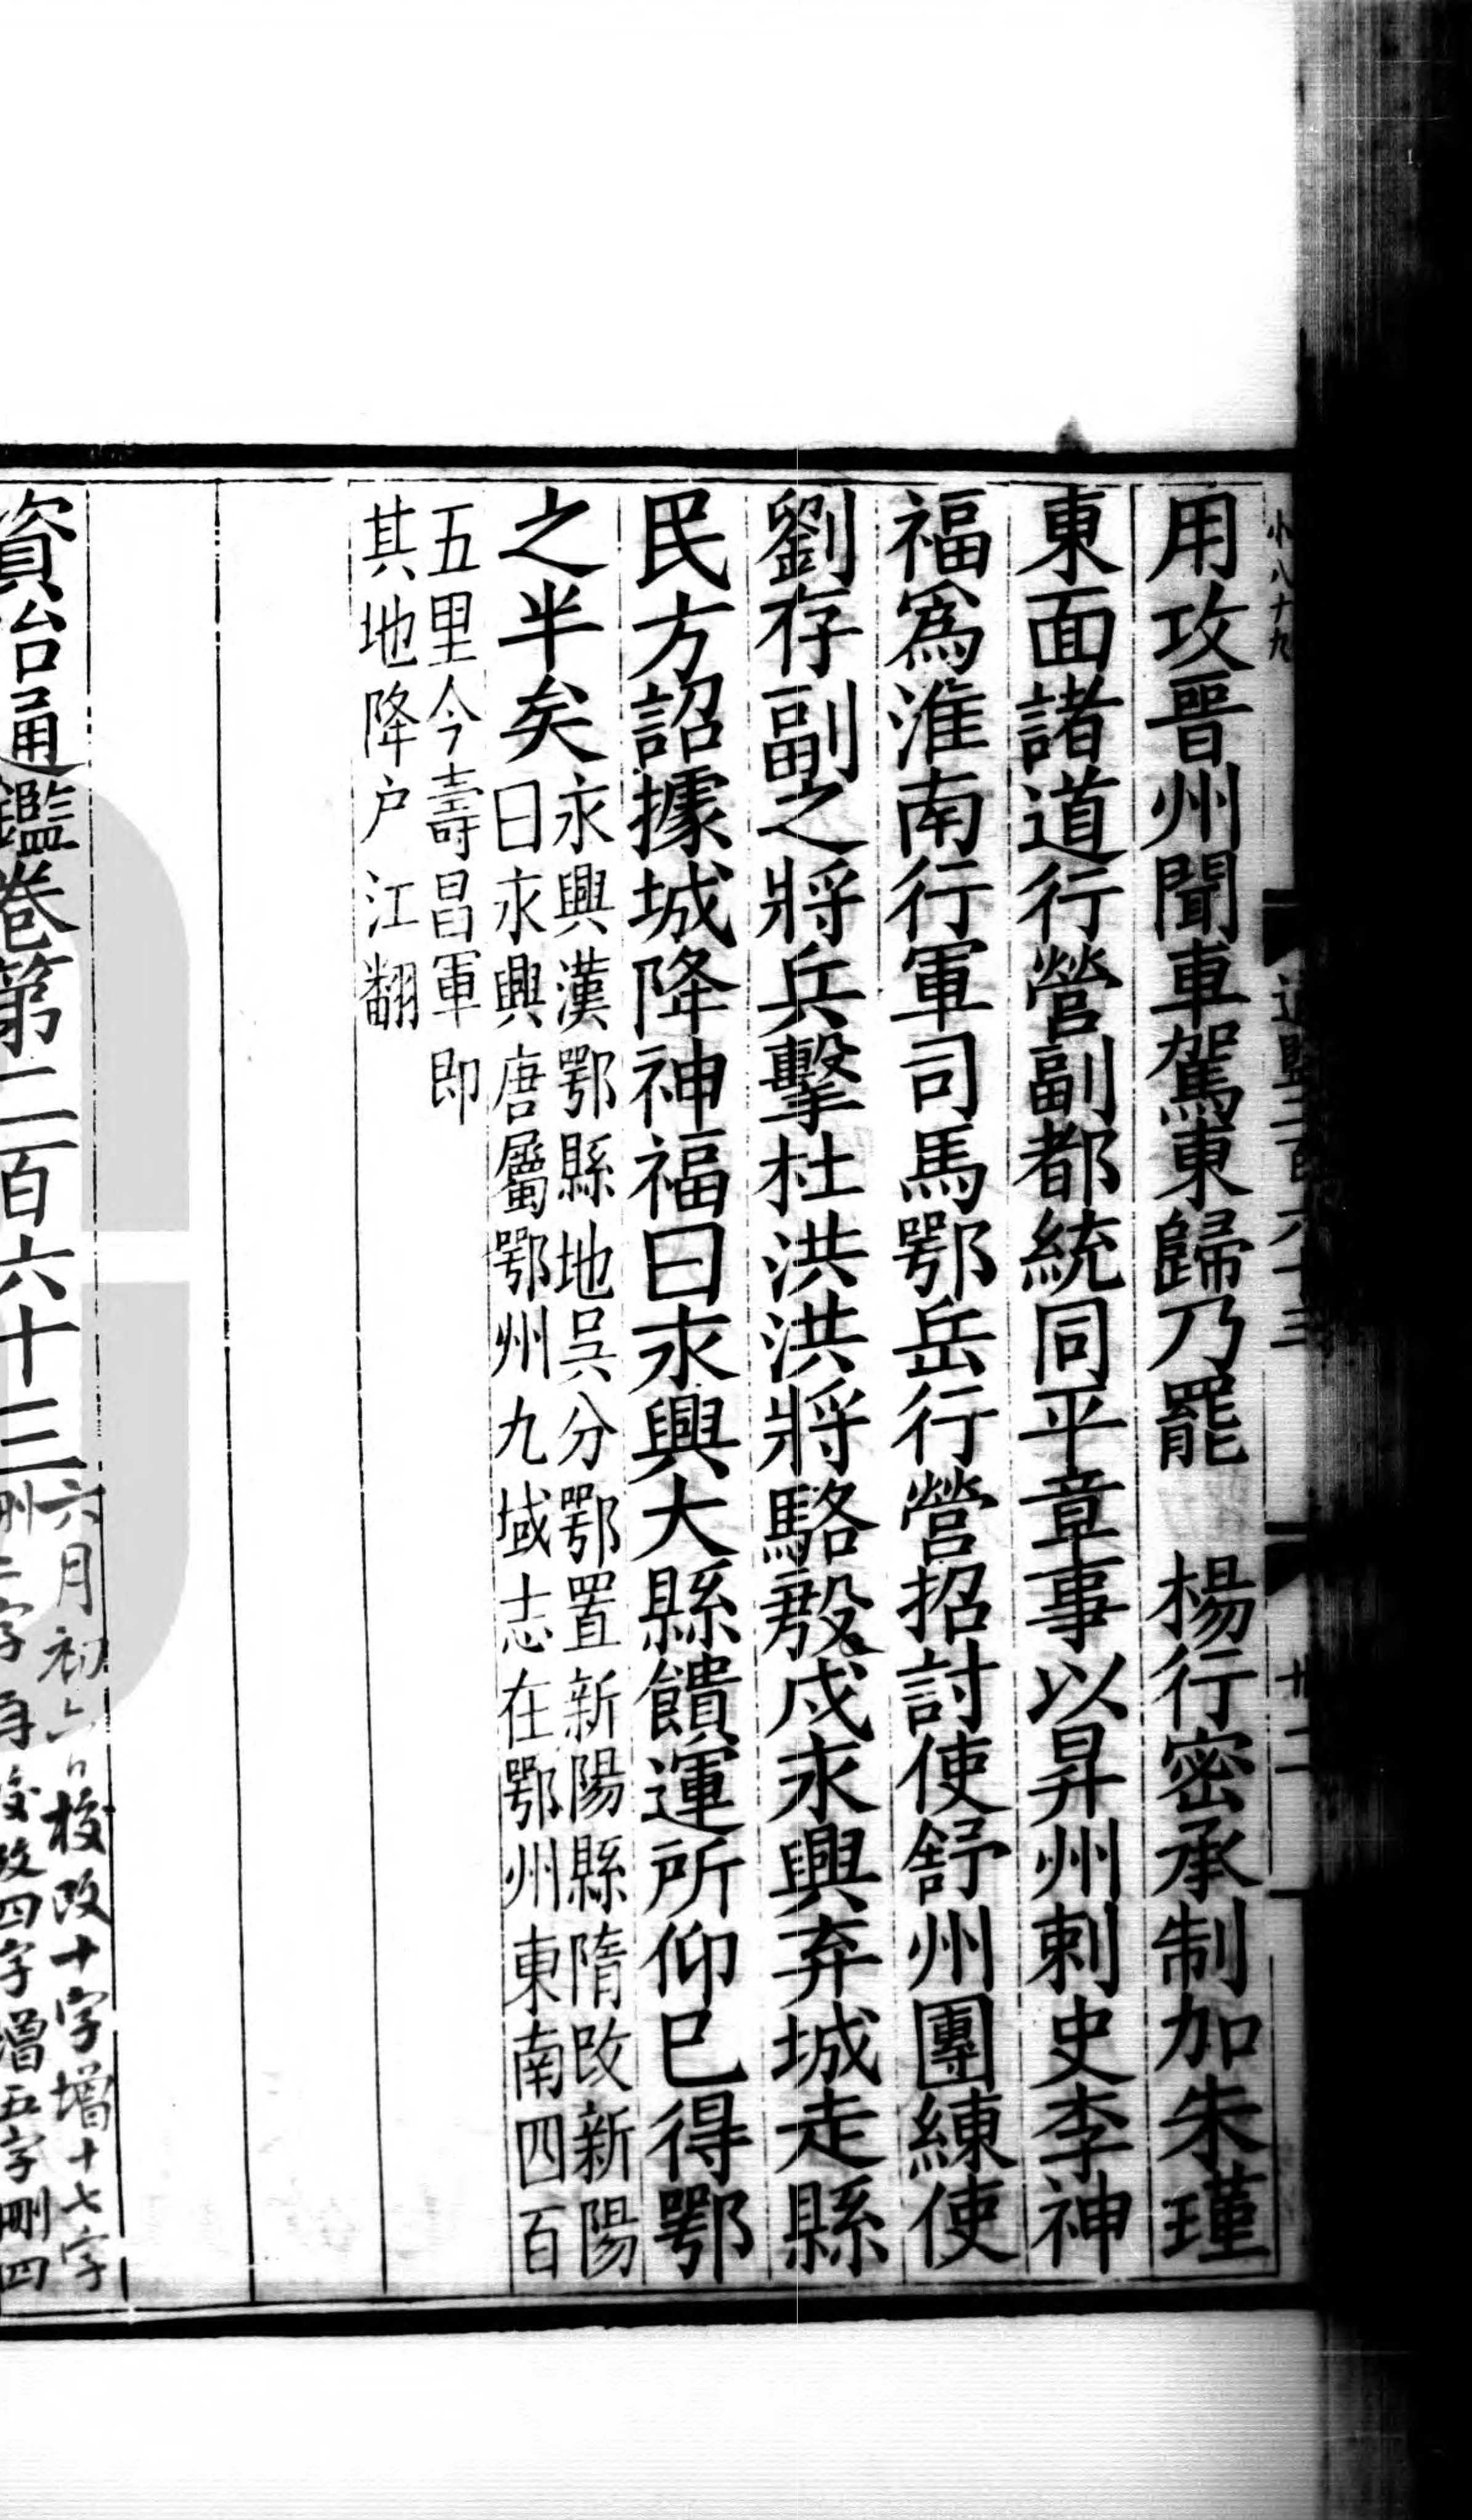 小八十九
用攻晉州聞車駕東歸乃罷　楊行密承制加朱瑾
東面諸道行營副都統同平章事以昇州刺史李神
福爲淮南行軍司馬鄂岳行營招討使舒州團練使
劉存副之將兵擊杜洪洪將駱殷戍永興弃城走縣
民方詔據城降神福曰永興大縣饋運所仰已得鄂
之半矣
永興漢鄂縣地吳分鄂置新陽縣隋改新陽
曰永興唐屬鄂州九域志在鄂州東南四百
五里今壽昌軍即
其地降户江翻
資治通鑑卷第二百六十三
六月初六日校改十字增十七字
刪二字再校改四字增五字刪四